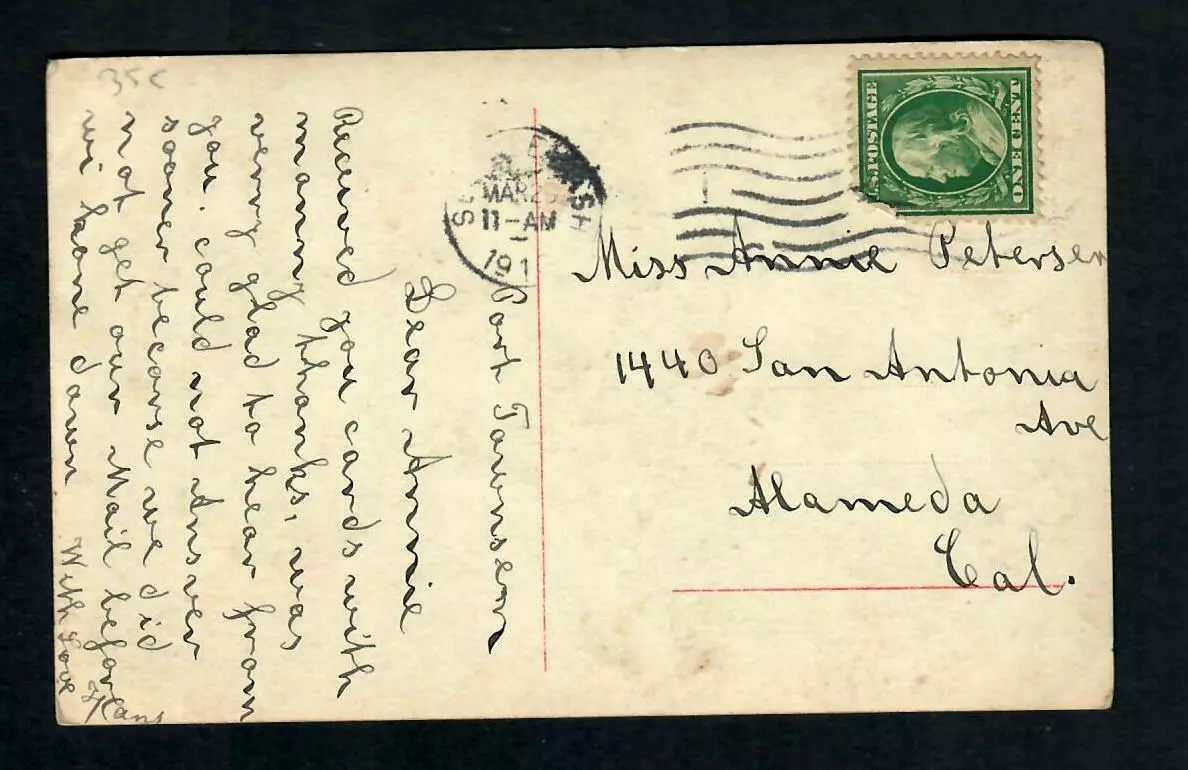 35c
Port Townsen
Dear Annie
Received you cards with
manny thanks, was
verry glad to hear from
you. could not Answer
sooner becorse we did
not get our Mail before
wi kome down
With Love
Hans
MAR 2
11-AM
191
U.S. POSTAGE
ONE CENT
Miss Annie Petersen
1440 San Antonia
Ave
Alameda
Cal.